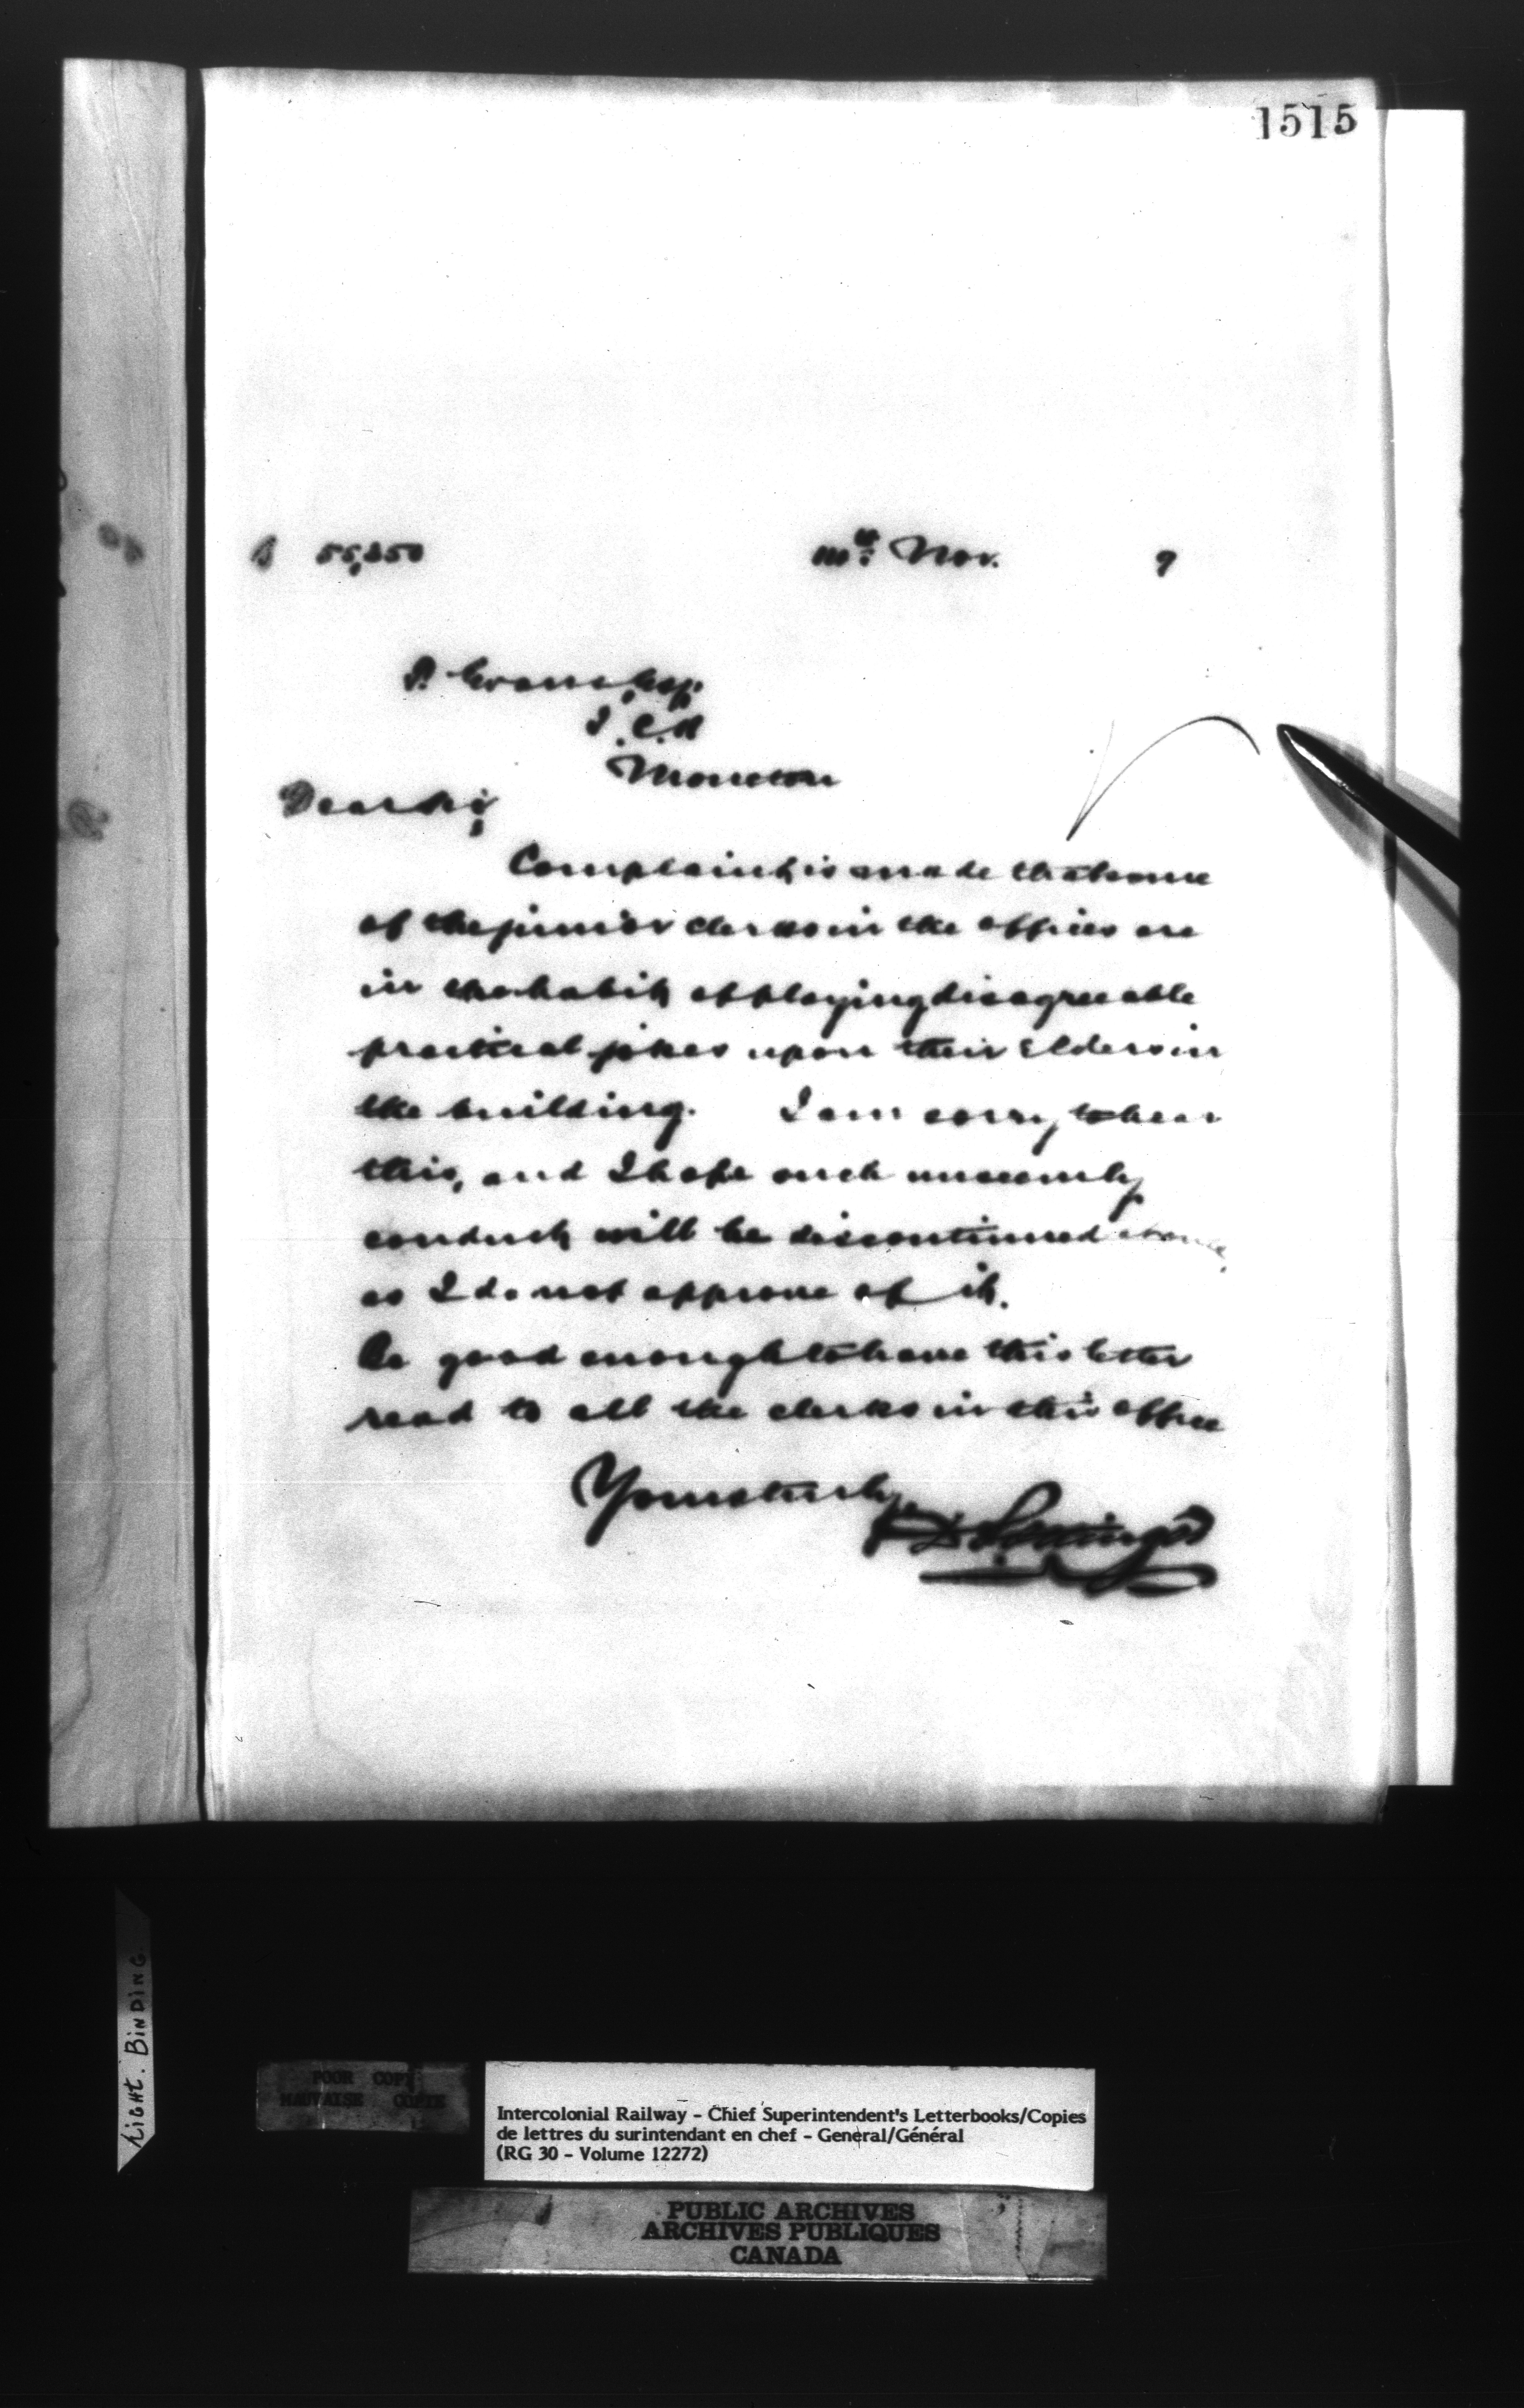 1515
55,850
Nov. 9
I.C.R
Moncton
Dear Sir,
Complaint is made that some
of the junior clerks in the offices are
in the habit of playing disagreeable
practical jokes upon their Elders in
the building. I am sorry to hear
this, and I hope such unseemly
conduct will be discontinued
as I do not approve of it.
Be good enough to have this letter
read to all the clerks in this office
Yours truly,
D Pottinger
LIGHT. BINDING
POOR COPY
MAUVAISE COPIE
Intercolonial Railway - Chief Superintendent's Letterbooks/Copies
de lettres du surintendant en chef - General/Général
(RG 30 - Volume 12272)
PUBLIC ARCHIVES
ARCHIVES PUBLIQUES
CANADA